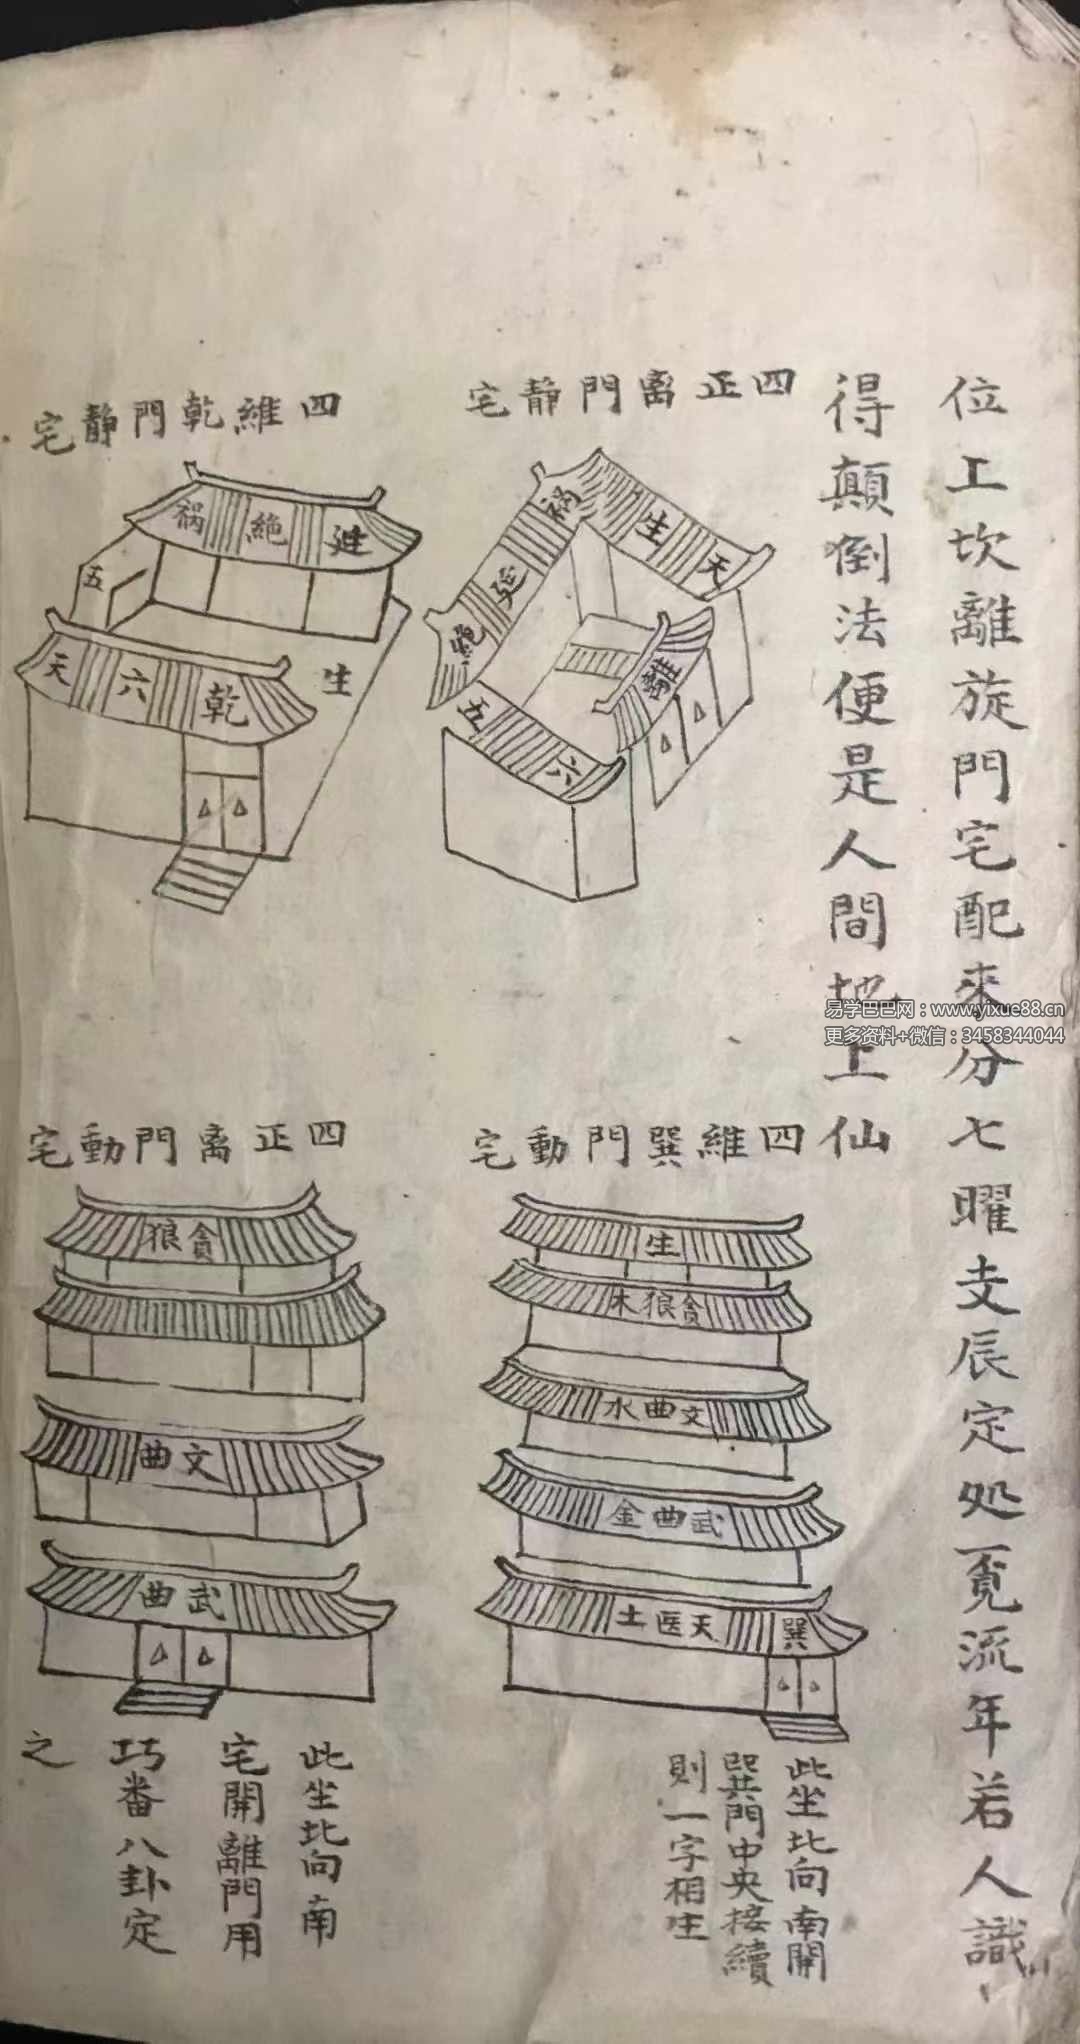 位上坎離旋門宅配來分七曜支辰定処一覓流年若人識
得顛倒法便是人間地上仙
四正离門靜宅
祸
生
天
延
絕
五
六
離
四維乾門靜宅
祸
絕
延
五
生
天
六
乾
四維巽門動宅
生
貪狼木
文曲水
武曲金
天医土
巽
此坐北向南開
巽門中央接續
則一字相生
四正离門動宅
貪狼
文曲
武曲
此坐北向南
宅開離門用
巧番八卦定
之
易学巴巴网：www.yixue88.cn
更多资料+微信：3458344044